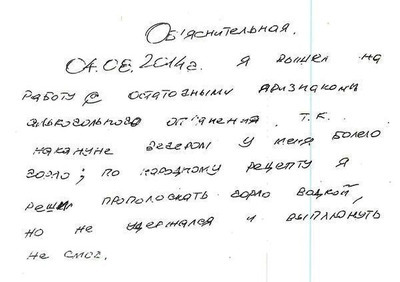 Об'яснительная.
04.08.2014г. я вышел на
работу с остаточными признаками
алькогольного оп'янения, т.к.
накануне вечером у меня болело
горло; по народному рецепту я
решил прополоскать горло водкой,
но не удержался и выплюнуть
не смог.